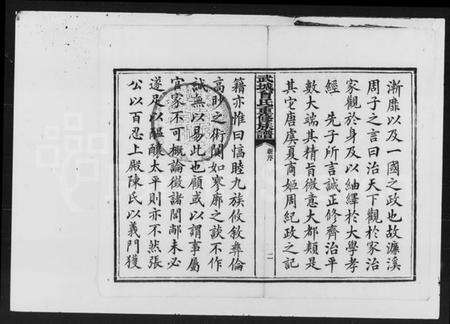 漸靡以及一國之政也故濂溪
周子之言曰治天下觀於家治
家觀於身及以紬繹於大學孝
經先子所言誠正修齊治平
數大端其精旨微意大都類是
其它唐虞夏商姬周紀政之記
武城曾氏重修族譜
序
二
籍亦惟曰惇睦九族攸敘彝倫
高眇之術闊如寥廓之談不作
試無以易此也顧或以謂事屬
宦家不可概論微諸閭邮未必
遂足以醞釀太平則亦不然張
公以百忍上殿陳氏以義門獲